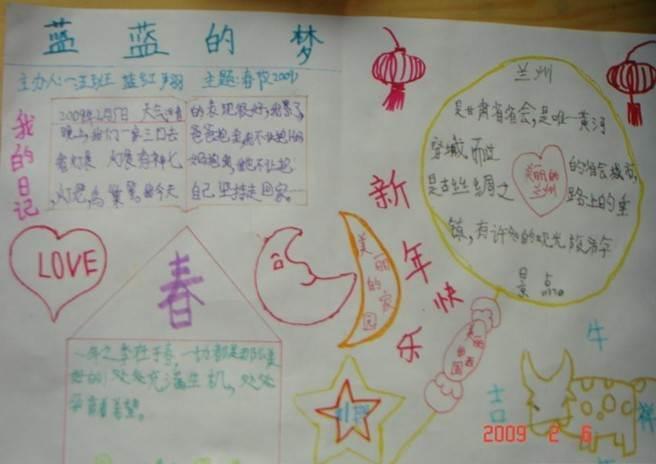 蓝蓝的梦
主办人:一、五班 蓝红 主题:春节2009
我的日记
2009年2月5日 天气
晚上,我们一家三口去
看灯展 灯展有神七
灯笼,鸟巢 我今天
的表现很好,我累了,
爸爸抱我,我不让抱,妈
妈抱我,我也不让抱
自己坚持走回家
LOVE
春
一年之季在于春,一切都是那么美
好的!处处充满生机,处处
孕育着希望。
美丽的家园
新年快乐
美丽
兰州
是甘肃省省会,是唯一黄河
穿城而过的省会城市,
是古丝绸之路上的重
镇,有许多的观光旅游
景点。
美丽的
兰州
牛
吉
祥
2009 2 6